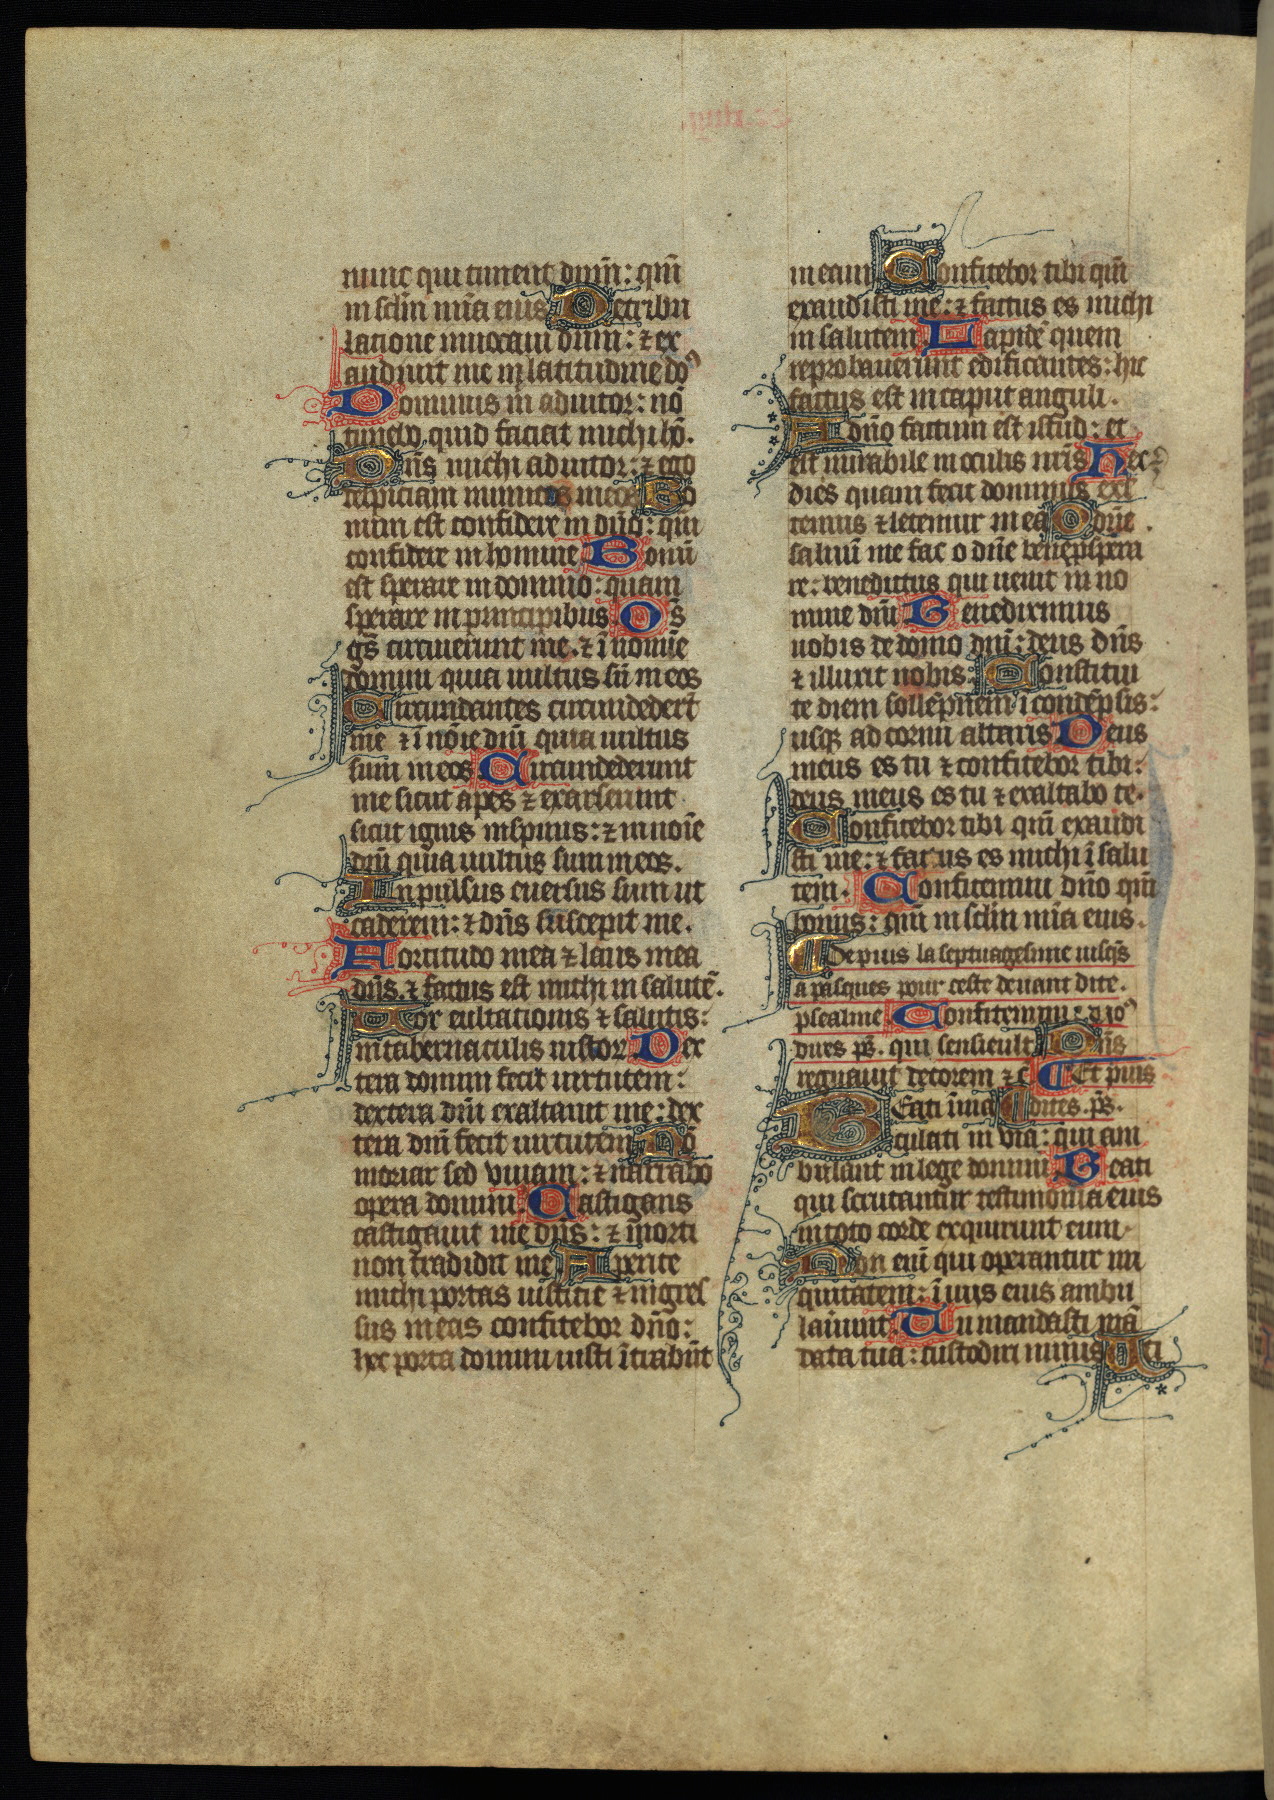 nunc qui timent dnm̄: qm̄
in sclm̄ mīa eius De tribu
latione inuocaui dnm̄: ⁊ ex
audiuit me in latitudine do⁹
Dominus m̄ adiutor: nō
timebo quid faciat michi hō.
Dn̄s michi adiutor: ⁊ ego
despiciam inimicos meos Bo
num est confidere in dn̄o: qm̄
confidere in homine Bonū
est sperare in domino: quam
sperare in principibus Om̄s
gēs circuierunt me. ⁊ ī nomīe
domini quia vultus sū in eos
Circundantes circundedert̄
me ⁊ ī nōie dn̄i quia vultus
sum in eos Circundederunt
me sicut apes ⁊ exarserunt
sicut ignis in spinis: ⁊ in noīe
dn̄i quia vultus sum in eos.
Inpulsus euersus sum ut
caderem: ⁊ dn̄s suscepit me.
Fortitudo mea ⁊ laus mea
dn̄s. ⁊ factus est michi in salutē.
Vox exultationis ⁊ salutis:
in tabernaculis iustor̄ Dex
tera domini fecit uirtutem:
dextera dn̄i exaltauit me: dex
tera dn̄i fecit uirtutem Nō
moriar sed viuam: ⁊ narrabo
opera domini Castigans
castigauit me dn̄s: ⁊ morti
non tradidit me Aperite
michi portas iusticie ⁊ ingres
sus in eas confitebor dn̄o:
hec porta domini iusti ītrabūt
in eam Confitebor tibi qm̄
exaudisti me: ⁊ factus es michi
in salutem Lapidē quem
reprobauerunt edificantes: hic
factus est in caput anguli.
A dn̄o factum est istud: et
est mirabile in oculis nr̄is Hec ē
dies quam fecit dominus exl̄
temus ⁊ letemur in eā O dn̄e
saluū me fac o dn̄e bene pspera
re: benedictus qui uenit in no
mine dn̄i Benediximus
uobis de domo dn̄i: deus dn̄s
⁊ illuxit nobis. Constitui
te diem sollēpnem ī condēpsis:
usq; ad cornu altaris Deus
meus es tu ⁊ confitebor tibi:
deus meus es tu ⁊ exaltabo te.
Confitebor tibi qm̄ exaudi
sti me: ⁊ factus es michi ī salu
tem. Confitemini dn̄o qm̄
bonus: qm̄ in sclm̄ mīa eius.
Depuis la septuagesime iusqs̄
a pasques pour ceste deuant dite.
psealme Confitemini: d io⁹
dires ps̄. qui sensieult Dn̄s
regnauit decorem ⁊c̄ Et puis
Beati īma dites. ps̄.
culati in via: qui am
bulant in lege domini Beati
qui scrutantur testimonia eius
in toto corde exquirunt eum.
Non enī qui operantur ini
quitatem: ī uiis eius ambu
lauerunt Tu mandasti mā
data tua: custodiri nimis Uti